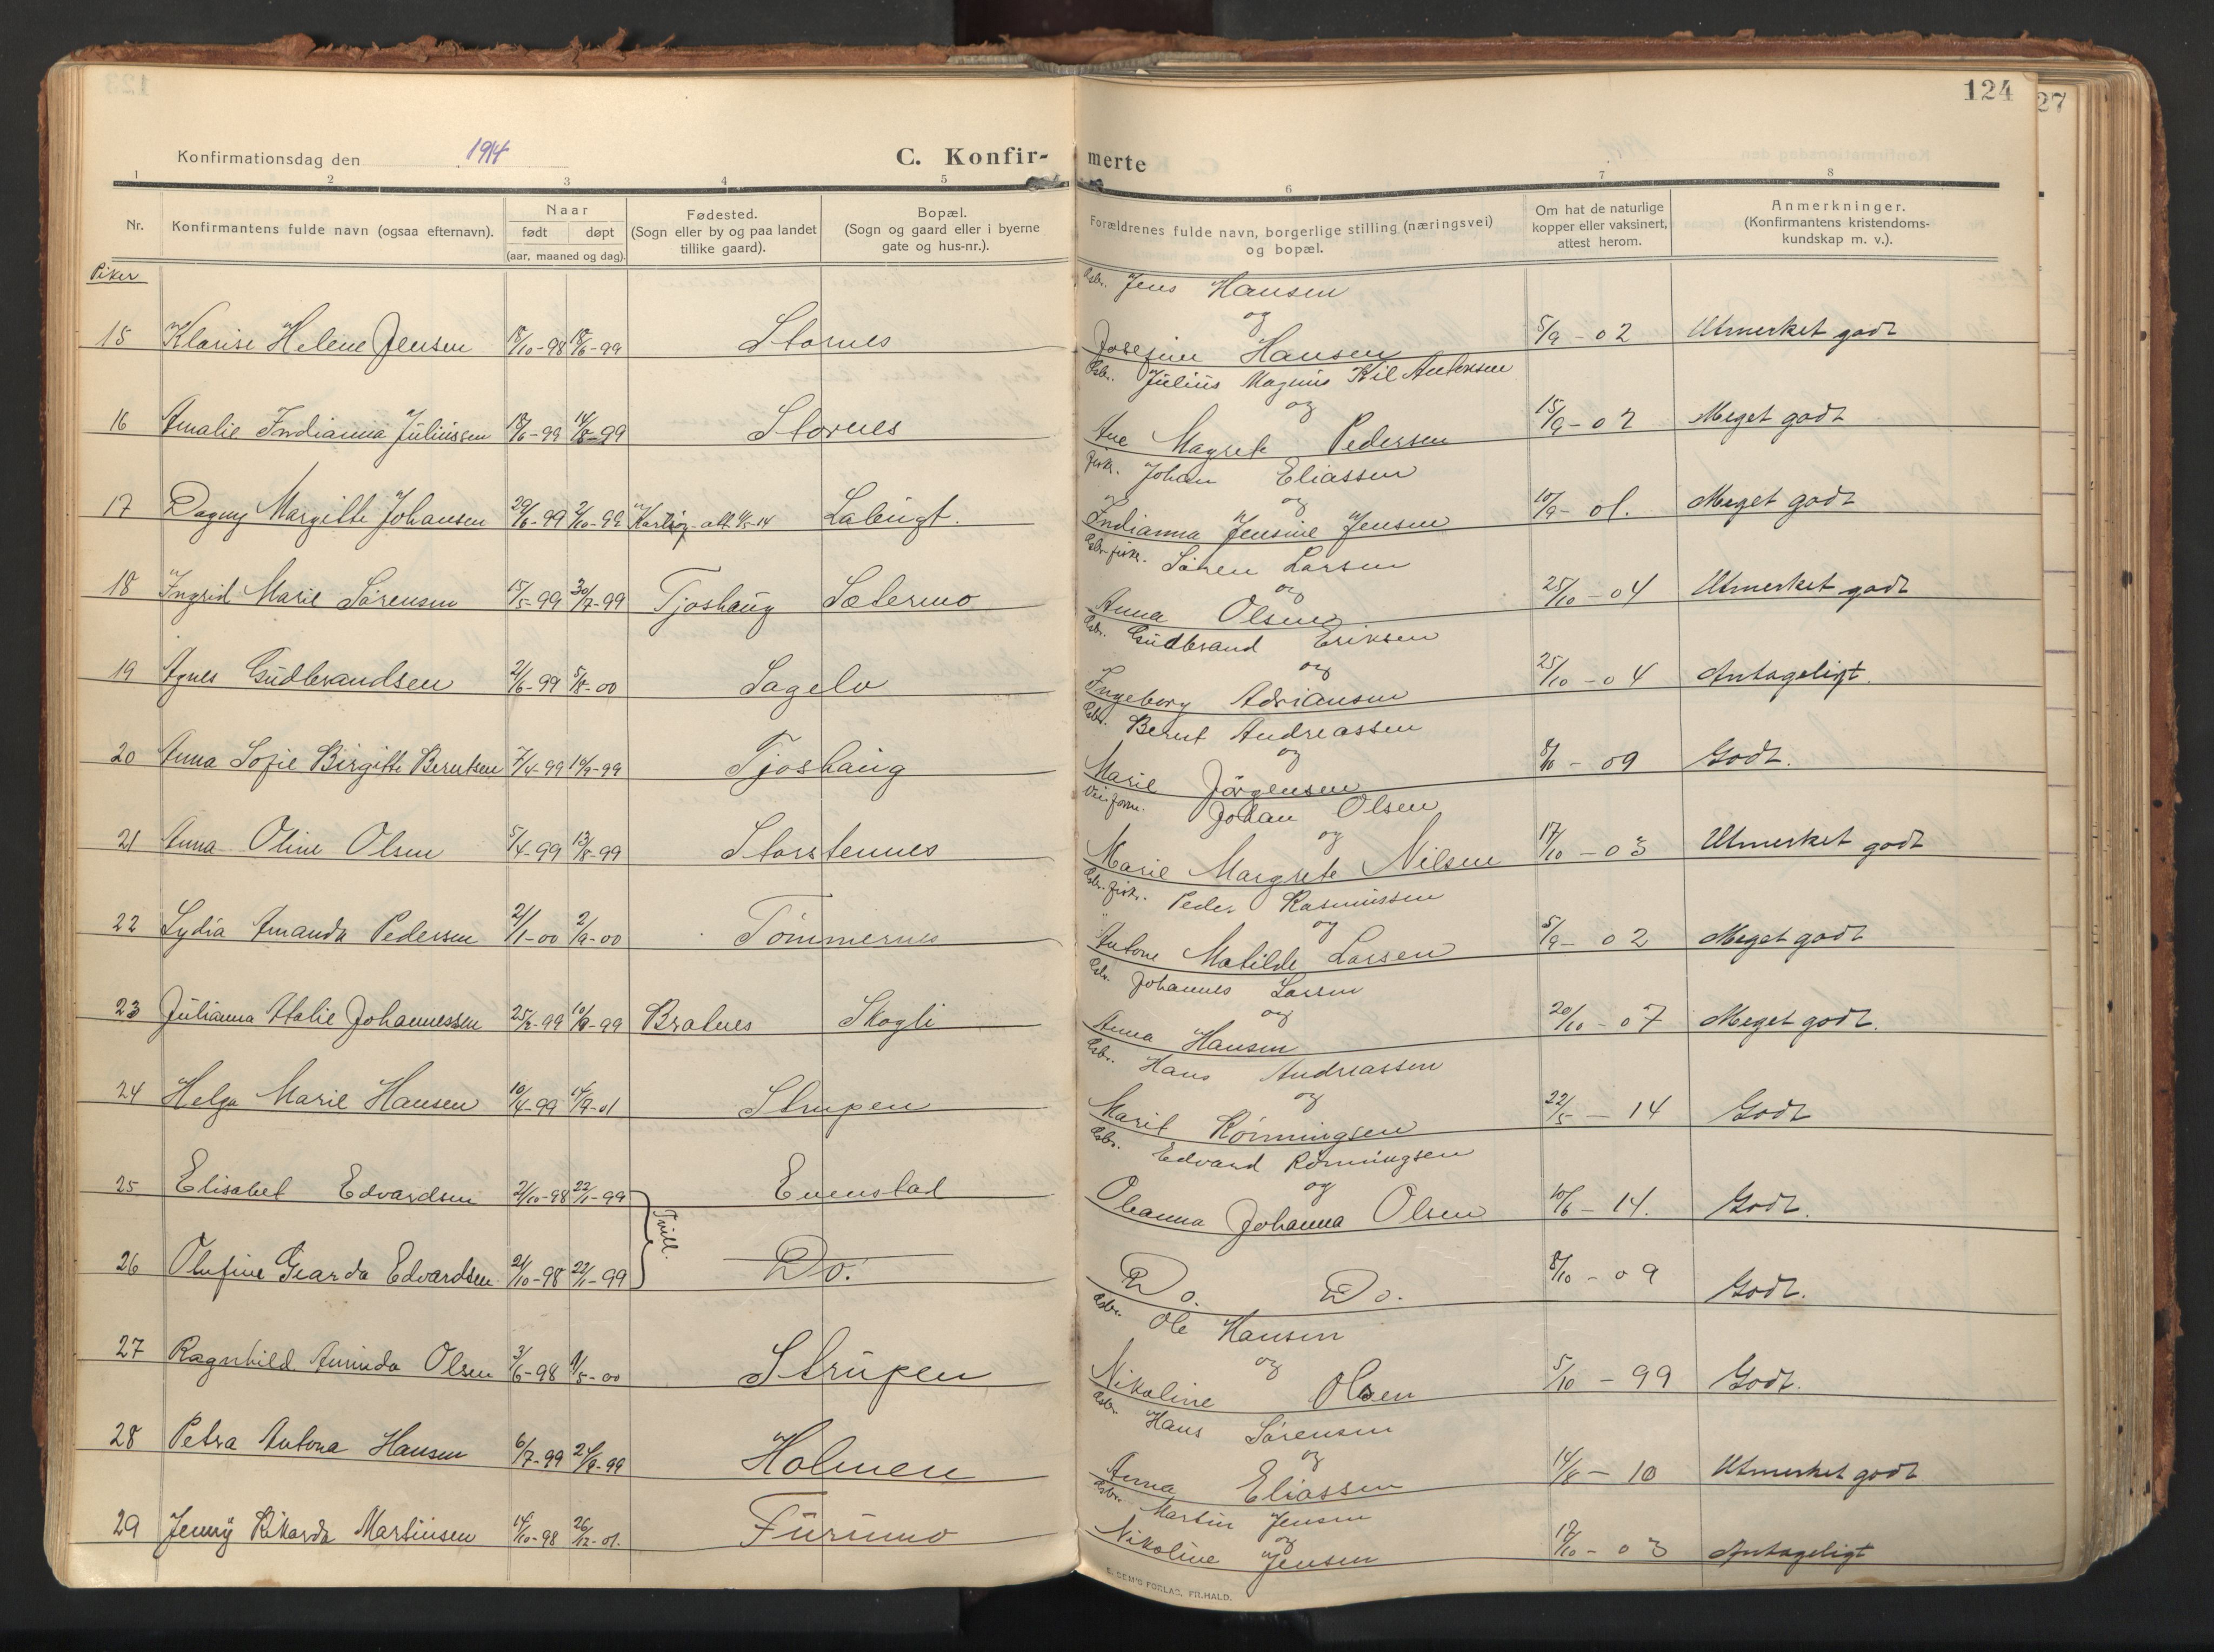 124
27
Konfirmationsdag den 1914
C. Konfir-
merte
1 2 3 4 5 6 7 8
Nr.
Konfirmantens fulde navn (ogsaa efternavn).
Naar
født døpt
(aar, maaned og dag).
Fødested.
(Sogn eller by og paa landet
tillike gaard).
Bopæl.
(Sogn og gaard eller i byerne
gate og hus-nr.).
Forældrenes fulde navn, borgerlige stilling (næringsvei)
og bopæl.
Om hat de naturlige
kopper eller vaksinert,
attest herom.
Anmerkninger.
(Konfirmantens kristendoms-
kundskap m. v.).
Piker
Gbr. Jens Hansen
og
15 Klarise Helene Jensen 18/10-98 18/6-99 Stornes Josefine Hansen 5/9-02 Utmerket godt
Gbr. Julius Magnus Kil Antonsen
og
16 Amalie Indianna Juliussen 18/6-99 14/8-99 Stornes Ane Magrete Pedersen 15/9-02 Meget godt
Fisk. Johan Eliassen
og
17 Dagny Margitte Johansen 29/6-99 2/10-99 Karlsøy att. 4/5-14 Labugt. Indianna Jensine Jensen 10/9-01. Meget godt
Gbr. fisk. Sören Larsen
og
18 Ingrid Marie Sörensen 15/5-99 30/7-99 Tjoshaug Sætermo Anna Olsen 25/10-04 Utmerket godt
Gbr. Gudbrand Eriksen
og
19 Agnes Gudbrandsen 2/6-99 5/8-00 Sagelv Ingeborg Adriansen 25/10-04 Antageligt.
Gbr. Bernt Andreassen
og
20 Anna Sofie Birgitte Berntsen 7/4-99 10/9-99 Tjoshaug Marie Jörgensen 8/10-09 Godt.
Veiform. Johan Olsen
og
21 Anna Oline Olsen 5/4-99 13/8-99 Storstennes Marie Margrete Nilsen 17/10-03 Utmerket godt
Gbr. fisk. Peder Rasmussen
og
22 Lydia Amanda Pedersen 2/1-00 2/9-00 Tömmernes Antone Matilde Larsen 5/9-02 Meget godt
Gbr. Johannes Larsen
og
23 Julianna Atalie Johannessen 25/8-99 10/9-99 Bratnes Skogli Anna Hansen 20/10-07 Meget godt.
Gbr. Hans Andreassen
og
24 Helga Marie Hansen 10/4-99 14/7-01 Strupen Marit Rönningsen 22/5-14 Godt
Gbr. Edvard Rönningsen
og
25 Elisabet Edvardsen 21/10-98 22/1-99 Tvill. Evenstad Oleanna Johanna Olsen 10/6-14. Godt.
26 Olufine Gearda Edvardsen 21/10-98 22/1-99 Do. Do. Do. 8/10-09 Godt.
Gbr. Ole Hansen
og
27 Ragnhild Aminda Olsen 3/6-98 9/5-00 Strupen Nikoline Olsen 5/10-99 Godt.
Gbr. Hans Sörensen
og
28 Petra Antona Hansen 6/7-99 24/9-99 Holmen Anna Eliassen 14/8-10 Utmerket godt
Gbr. Martin Jensen
og
29 Jenny Rikarda Martinsen 14/10-98 26/12-01. Furumo Nikoline Jensen 17/10-03 Antageligt
E. SEM'S FORLAG, FR.HALD.